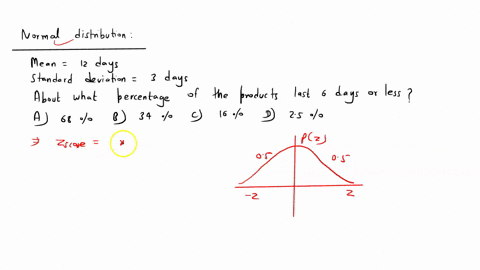 Normal distribution:
Mean = 12 days
Standard deviation = 3 days
About what percentage of the products last 6 days or less?
A) 68 % B) 34 % C) 16 % D) 2.5 %
⇒ Zscore = x
P(z)
0.5 0.5
-2 2